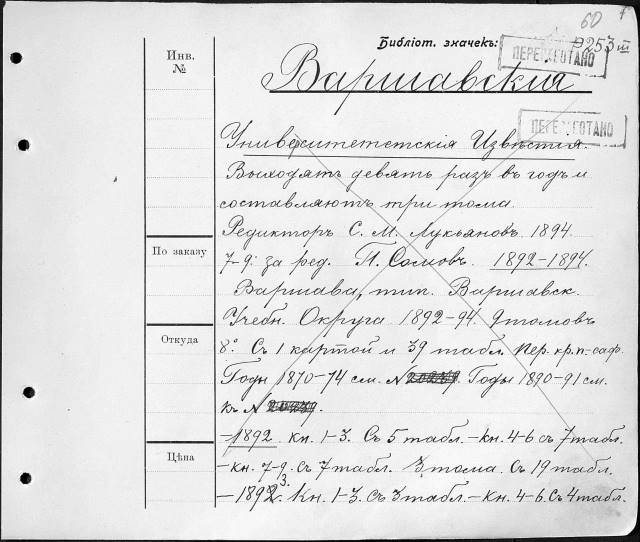 60
Библіот. значекъ:
P253 III
ПЕРЕИНВЕНТОВАНО
Инв.
№
Варшавскія
Университетскія Извѣстія.
Выходятъ девять разъ въ годъ и
составляютъ три тома.
Редикторъ С. М. Лукьяновъ. 1894.
7-9: за ред. П. Сомовъ. 1892-1894.
По заказу
Варшава, тип. Варшавск.
Учебн. Округа 1892-94. 9 томовъ
Откуда
8° Съ 1 картой и 39 табл. Пер. кр. п.-саф.
Годы 1870-74 см. № Годы 1890-91 см.
къ №
-1892. кн. 1-3. Съ 5 табл. - кн. 4-6 съ 7 табл.
Цѣна
-кн. 7-9. съ 7 табл. 3 тома. Съ 19 табл.
-1893. Кн. 1-3. съ 3 табл. - Кн. 4-6. съ 4 табл.